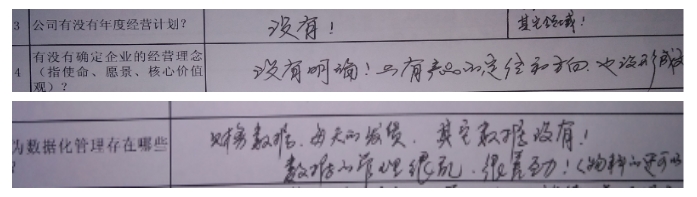 3 公司有没有年度经营计划？ 没有！ 其它领域！
有没有确定企业的经营理念
4 （指使命、愿景、核心价值 没有明确！只有产品的定位和方向，也没形成
观）？
为数据化管理存在哪些 财务数据，每天的发货，其它数据没有！
数据的管理很乱，很差劲！（物料的还可以